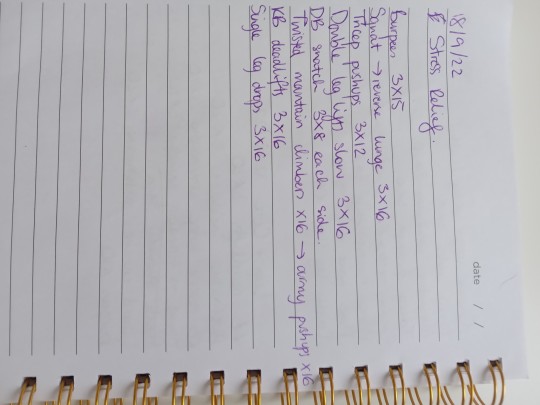 date / /
18/9/22
Stress Relief.
Burpees 3x15
Squat → reverse lunge 3x16
Tricep pushups 3x12
Double leg lifts slow 3x16
DB snatch 3x8 each side.
Twisted mantain climbers x16 → army pushups x16
KB deadlifts 3x16
Single leg drops 3x16